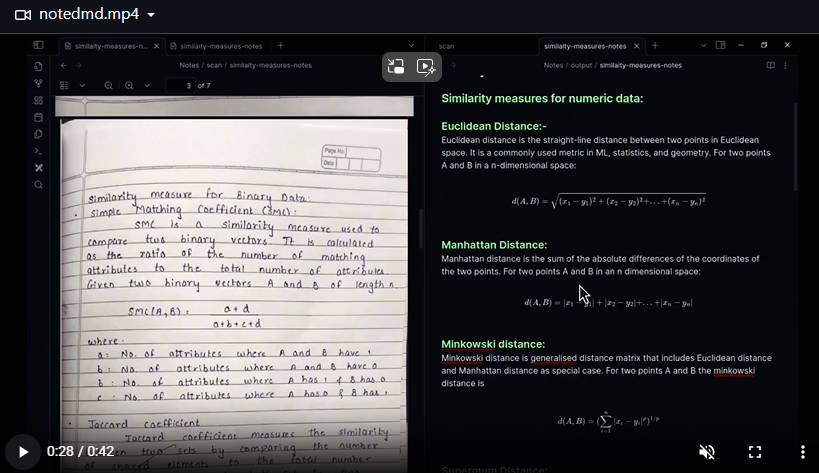 notedmd.mp4
similaity-measures-n...
similaity-measures-notes
scan
similaity-measures-notes
Notes / scan / similaity-measures-notes
Notes / output / similaity-measures-notes
3 of 7
Page No.
Date
Similarity measure for Binary Data:
Simple Matching Coefficient (SMC):
SMC is a similarity measure used to
compare two binary vectors. It is calculated
as the ratio of the number of matching
attributes to the total number of attributes
Given two binary vectors A and B of length n.
SMC(A, B) = a+d
a+b+c+d
where
a: No. of attributes where A and B have 1
b: No. of attributes where A and B have 0
b: No. of attributes where A has 1 & B has 0
c: No. of attributes where A has 0 & B has 1
Jaccard coefficient
Jaccard coefficient measures the similarity
two sets by comparing the number
of shared elements to the total number
Similarity measures for numeric data:
Euclidean Distance:-
Euclidean distance is the straight-line distance between two points in Euclidean
space. It is a commonly used metric in ML, statistics, and geometry. For two points
A and B in a n-dimensional space:
d(A, B) = √(x₁ − y₁)² + (x₂ − y₂)²+...+(xₙ − yₙ)²
Manhattan Distance:
Manhattan distance is the sum of the absolute differences of the coordinates of
the two points. For two points A and B in an n dimensional space:
d(A, B) = |x₁ − y₁| + |x₂ − y₂|+...+|xₙ − yₙ|
Minkowski distance:
Minkowski distance is generalised distance matrix that includes Euclidean distance
and Manhattan distance as special case. For two points A and B the minkowski
distance is
d(A, B) = (∑ⁿᵢ₌₁ |xᵢ − yᵢ|ᵖ)¹/ᵖ
Supermum Distance:
0:28 / 0:42